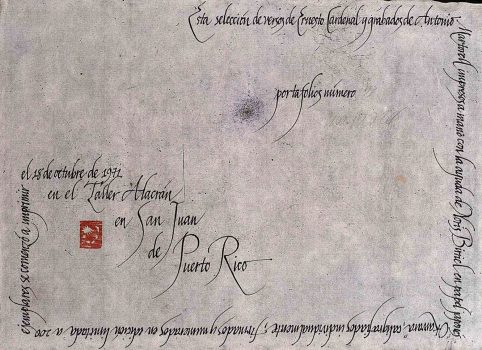 Esta selección de versos de Ernesto Cardenal y grabados de Antonio
Martorell impresos a mano con la ayuda de en papel
caligrafiados individualmente, firmados y numerados en edición limitada a 200
ejemplares se comenzó a imprimir
el 18 de octubre de 1971
en el Taller Alacrán
en San Juan
de
Puerto Rico
portafolios número